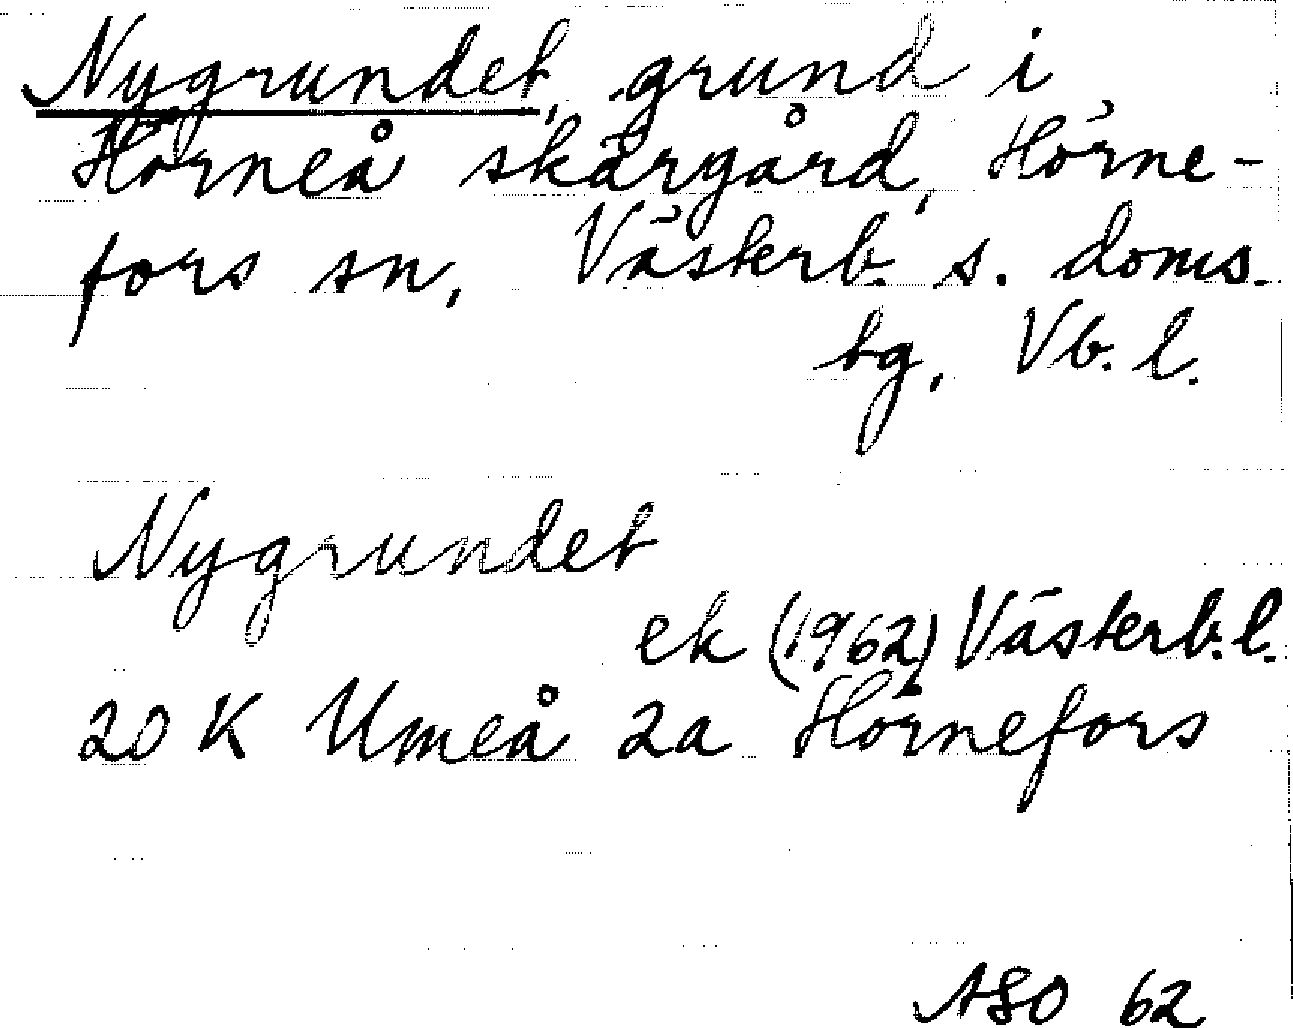 Nygrundet, grund i
Hörneå skärgård, Hörne-
fors sn, Västerb. s. doms.
tg, Vb. l.
Nygrundet
ek (1962) Västerb. l.
20 K Umeå 2a Hörnefors
ASO 62